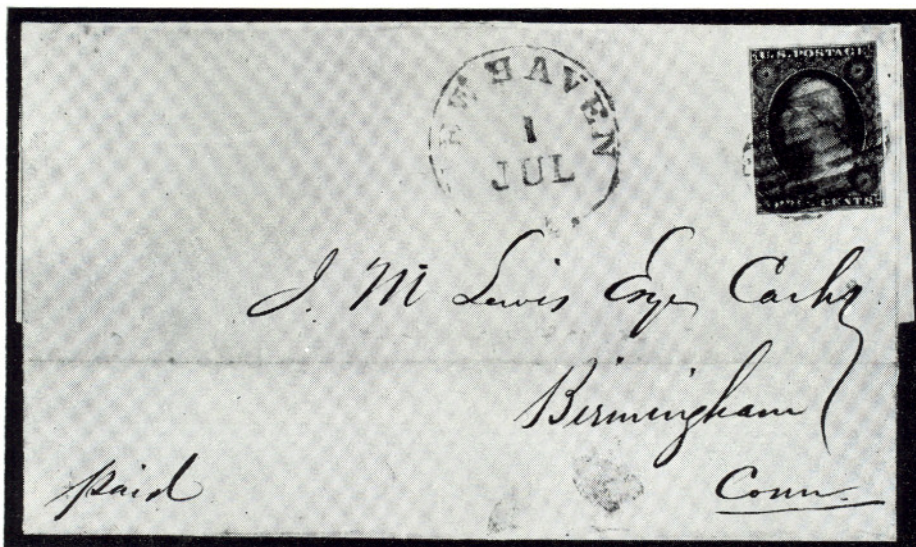 NEW HAVEN
1
JUL
U.S. POSTAGE
CENTS
J. M Lewis Esqr Cashr
Birmingham
Conn.
paid